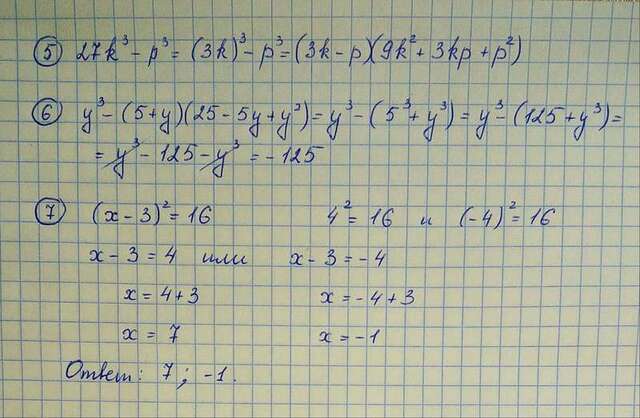 ⑤ 27k³ - p³ = (3k)³ - p³ = (3k - p)(9k² + 3kp + p²)
⑥ y³ - (5+y)(25 - 5y + y²) = y³ - (5³ + y³) = y³ - (125 + y³) =
= y³ - 125 - y³ = - 125
⑦ (x - 3)² = 16 4² = 16 и (-4)² = 16
x - 3 = 4 или x - 3 = -4
x = 4 + 3 x = -4 + 3
x = 7 x = -1
Ответ: 7 ; -1.